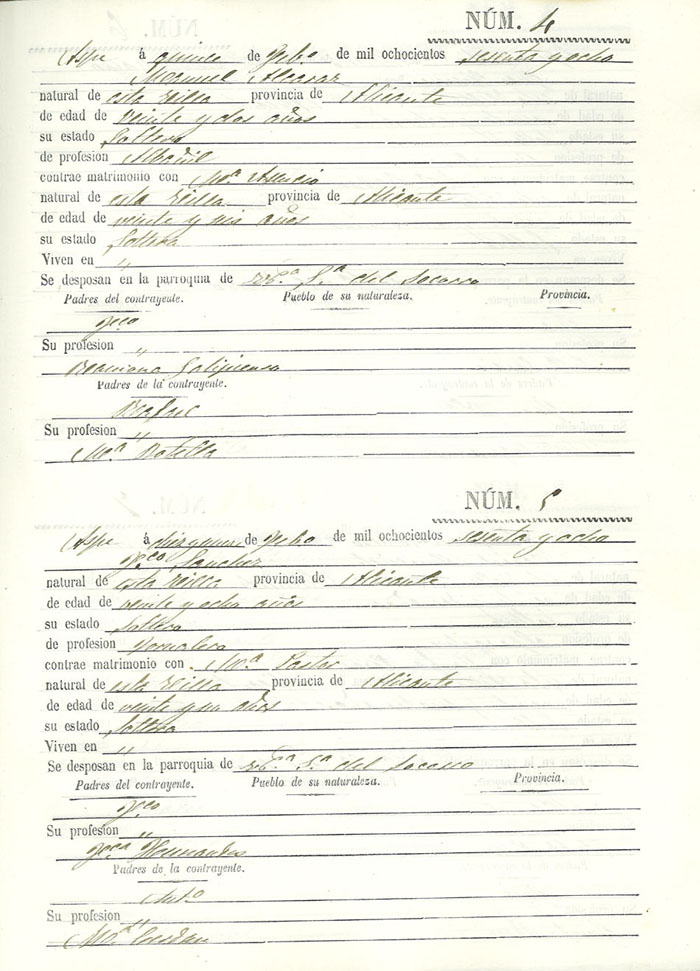 NÚM. 4
Aspe á quince de Febo de mil ochocientos sesenta y ocho
Manuel Alcaraz
natural de esta Villa provincia de Alicante
de edad de veinte y dos años
su estado Soltero
de profesion Albañil
contrae matrimonio con Mª Asencio
natural de esta Villa provincia de Alicante
de edad de veinte y seis años
su estado Soltera
Viven en "
Se desposan en la parroquia de Sª del Socorro
Padres del contrayente. Pueblo de su naturaleza. Provincia.
Fco
Su profesion "
Mariana
Padres de la contrayente.
Rafael
Su profesion "
Mª Botella
NÚM. 5
Aspe á de Febo de mil ochocientos sesenta y ocho
Fco Sanchez
natural de esta Villa provincia de Alicante
de edad de veinte y ocho años
su estado Soltero
de profesion Jornalero
contrae matrimonio con Mª Pastor
natural de esta Villa provincia de Alicante
de edad de veinte y un años
su estado Soltera
Viven en "
Se desposan en la parroquia de Sª del Socorro
Padres del contrayente. Pueblo de su naturaleza. Provincia.
Fco
Su profesion "
Fca Hernandez
Padres de la contrayente.
Antº
Su profesion "
Mª Cerdan